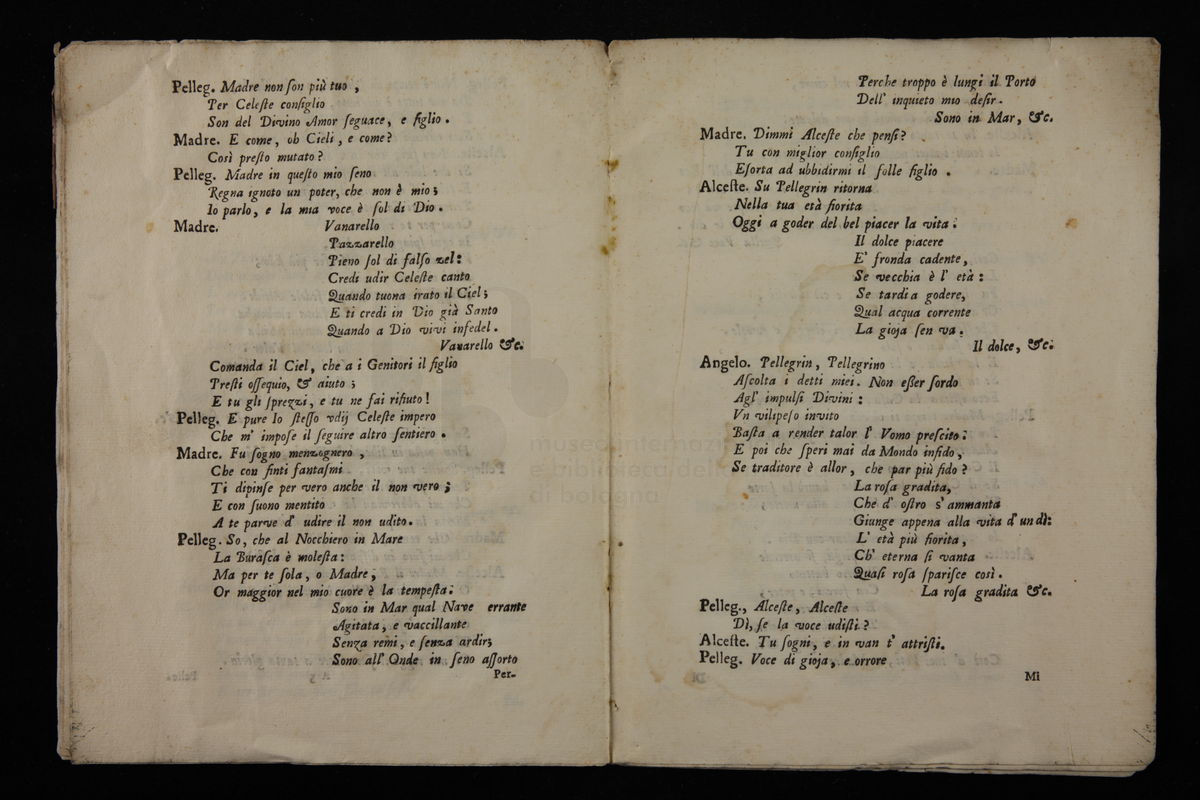 Pelleg. Madre non ſon più tuo ,
Per Celeſte conſiglio
Son del Divino Amor ſeguace, e figlio .
Madre. E come, oh Cieli , e come?
Così preſto mutato?
Pelleg. Madre in queſto mio ſeno
Regna ignoto un poter, che non è mio;
Io parlo, e la mia voce è ſol di Dio .
Madre. Vanarello
Pazzarello
Pieno ſol di falſo zel:
Credi udir Celeſte canto
Quando tuona irato il Ciel;
E ti credi in Dio già Santo
Quando a Dio vivi infedel .
Vanarello &c.
Comanda il Ciel, che a i Genitori il figlio
Preſti oſſequio, & aiuto ;
E tu gli ſprezzi, e tu ne fai rifiuto!
Pelleg. E pure Io ſteſſo vdij Celeſte impero
Che m' impoſe il ſeguire altro ſentiero .
Madre. Fu ſogno menzognero ,
Che con finti fantaſmi
Ti dipinſe per vero anche il non vero ;
E con ſuono mentito
A te parve d' udire il non udito.
Pelleg. So, che al Nocchiero in Mare
La Buraſca è moleſta:
Ma per te ſola, o Madre,
Or maggior nel mio cuore è la tempeſta.
Sono in Mar qual Nave errante
Agitata, e vaccillante
Senza remi, e ſenza ardir;
Sono all' Onde in ſeno aſſorto
Per-
Perche troppo è lungi il Porto
Dell' inquieto mio deſir.
Sono in Mar, &c.
Madre. Dimmi Alceſte che penſi?
Tu con miglior conſiglio
Eſorta ad ubbidirmi il folle figlio .
Alceſte. Su Pellegrin ritorna
Nella tua età fiorita
Oggi a goder del bel piacer la vita.
Il dolce piacere
E' fronda cadente,
Se vecchia è l' età :
Se tardi a godere,
Qual acqua corrente
La gioja ſen va.
Il dolce, &c.
Angelo. Pellegrin, Pellegrino
Aſcolta i detti miei. Non eſſer ſordo
Agl' impulſi Divini :
Vn vilipeſo invito
Baſta a render talor l' Vomo preſcito.
E poi che ſperi mai da Mondo infido,
Se traditore è allor, che par più fido?
La roſa gradita,
Che d' oſtro s' ammanta
Giunge appena alla vita d' un dì:
L' età più fiorita,
Ch' eterna ſi vanta
Quaſi roſa ſpariſce così.
La roſa gradita &c.
Pelleg., Alceſte, Alceſte
Dì, ſe la voce udiſti.?
Alceſte. Tu ſogni, e in van t' attriſti.
Pelleg. Voce di gioja, e orrore
Mi
museo internazi
e biblioteca del
di bologna